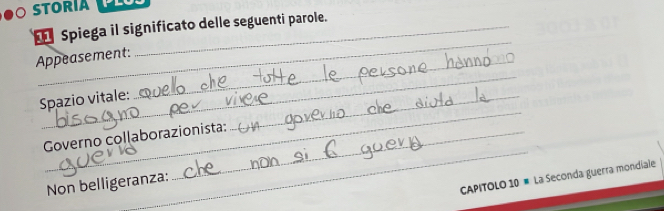 STORIA PLUS
11 Spiega il significato delle seguenti parole.
Appeasement:
Spazio vitale: quello che tutte le persone hanno
bisogno per vivere
Governo collaborazionista: un governo che aiuta la
guerra
Non belligeranza: che non si fa guerra
CAPITOLO 10 La Seconda guerra mondiale